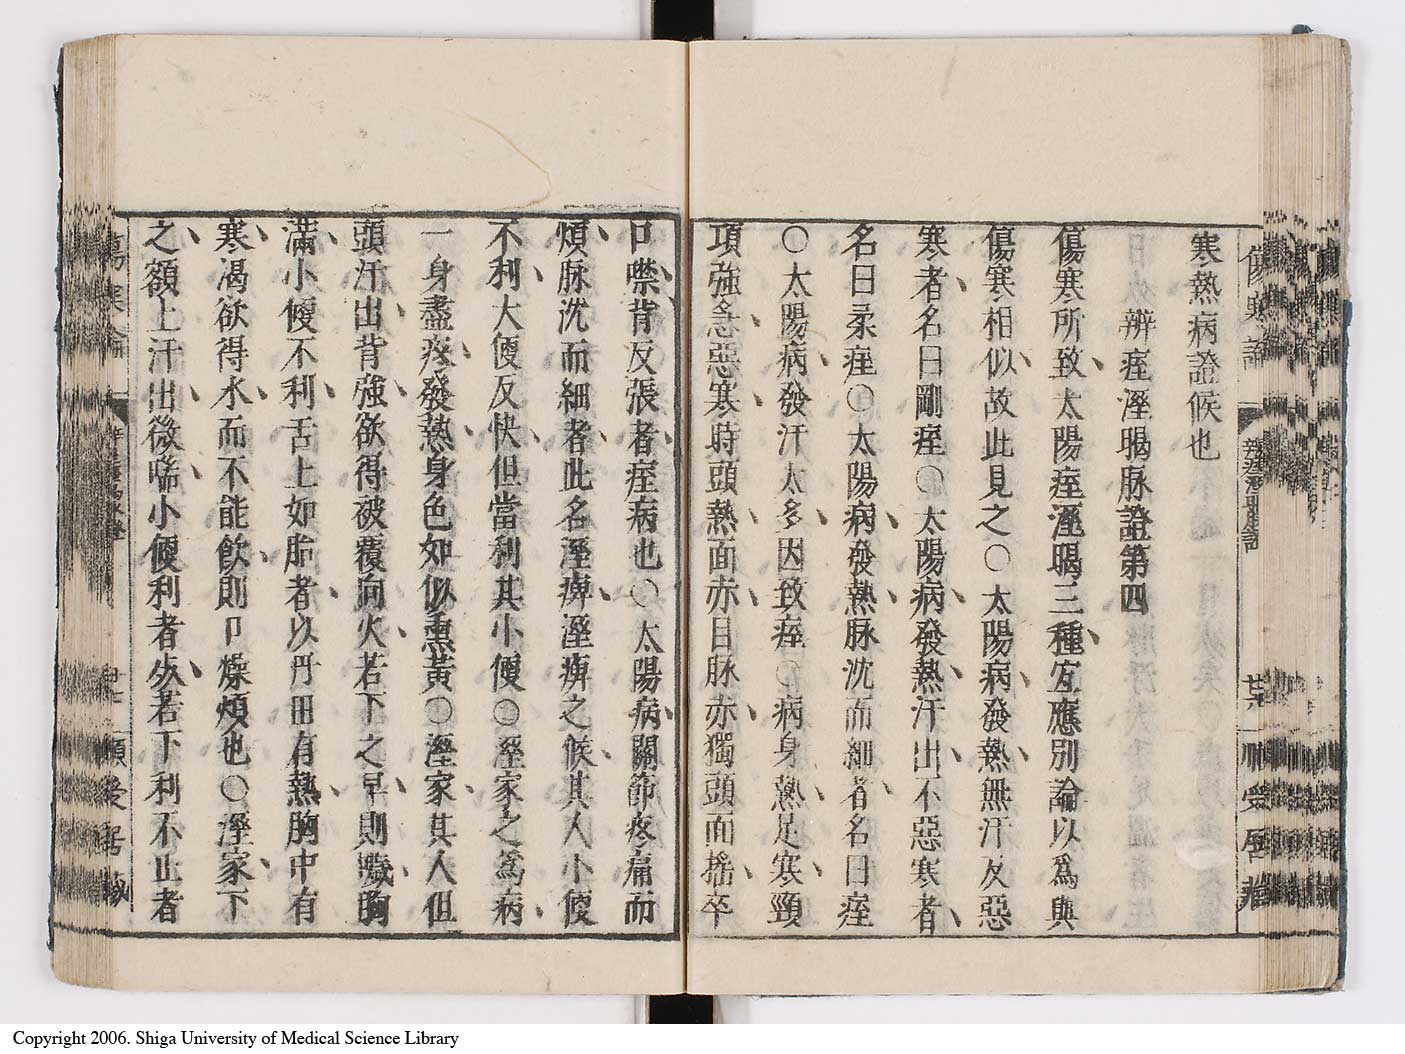 寒熱病證候也
辨痓溼暍脉證第四
傷寒所致太陽痓溼暍三種宐應別論以爲與
傷寒相似故此見之〇太陽病發熱無汗反惡
寒者名曰剛痓〇太陽病發熱汗出不惡寒者
名曰柔痓〇太陽病發熱脉沈而細者名曰痓
〇太陽病發汗太多因致痓〇病身熱足寒頸
項強急惡寒時頭熱面赤目脉赤獨頭面搖卒
口噤背反張者痓病也〇太陽病關節疼痛而
煩脉沈而細者此名溼痺溼痺之候其人小便
不利大便反快但當利其小便〇溼家之爲病
一身盡疼發熱身色如似熏黃〇溼家其人但
頭汗出背強欲得被覆向火若下之早則噦胸
滿小便不利舌上如胎者以丹田有熱胸中有
寒渴欲得水而不能飮則口燥煩也〇溼家下
之額上汗出微喘小便利者死若下利不止者
傷寒論
順受居藏
Copyright 2006. Shiga University of Medical Science Library